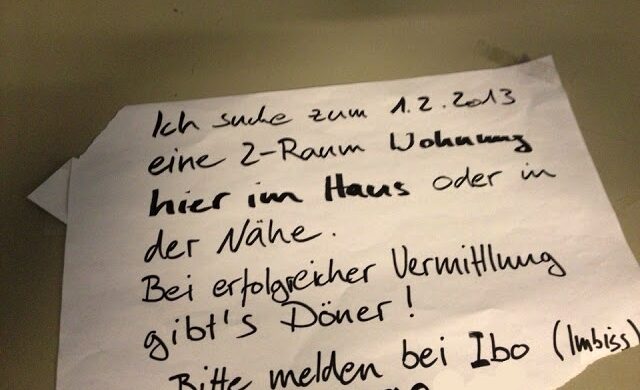 Ich suche zum 1.2.2013
eine 2-Raum Wohnung
hier im Haus oder in
der Nähe.
Bei erfolgreicher Vermittlung
gibt's Döner!
Bitte melden bei Ibo (Imbiss)